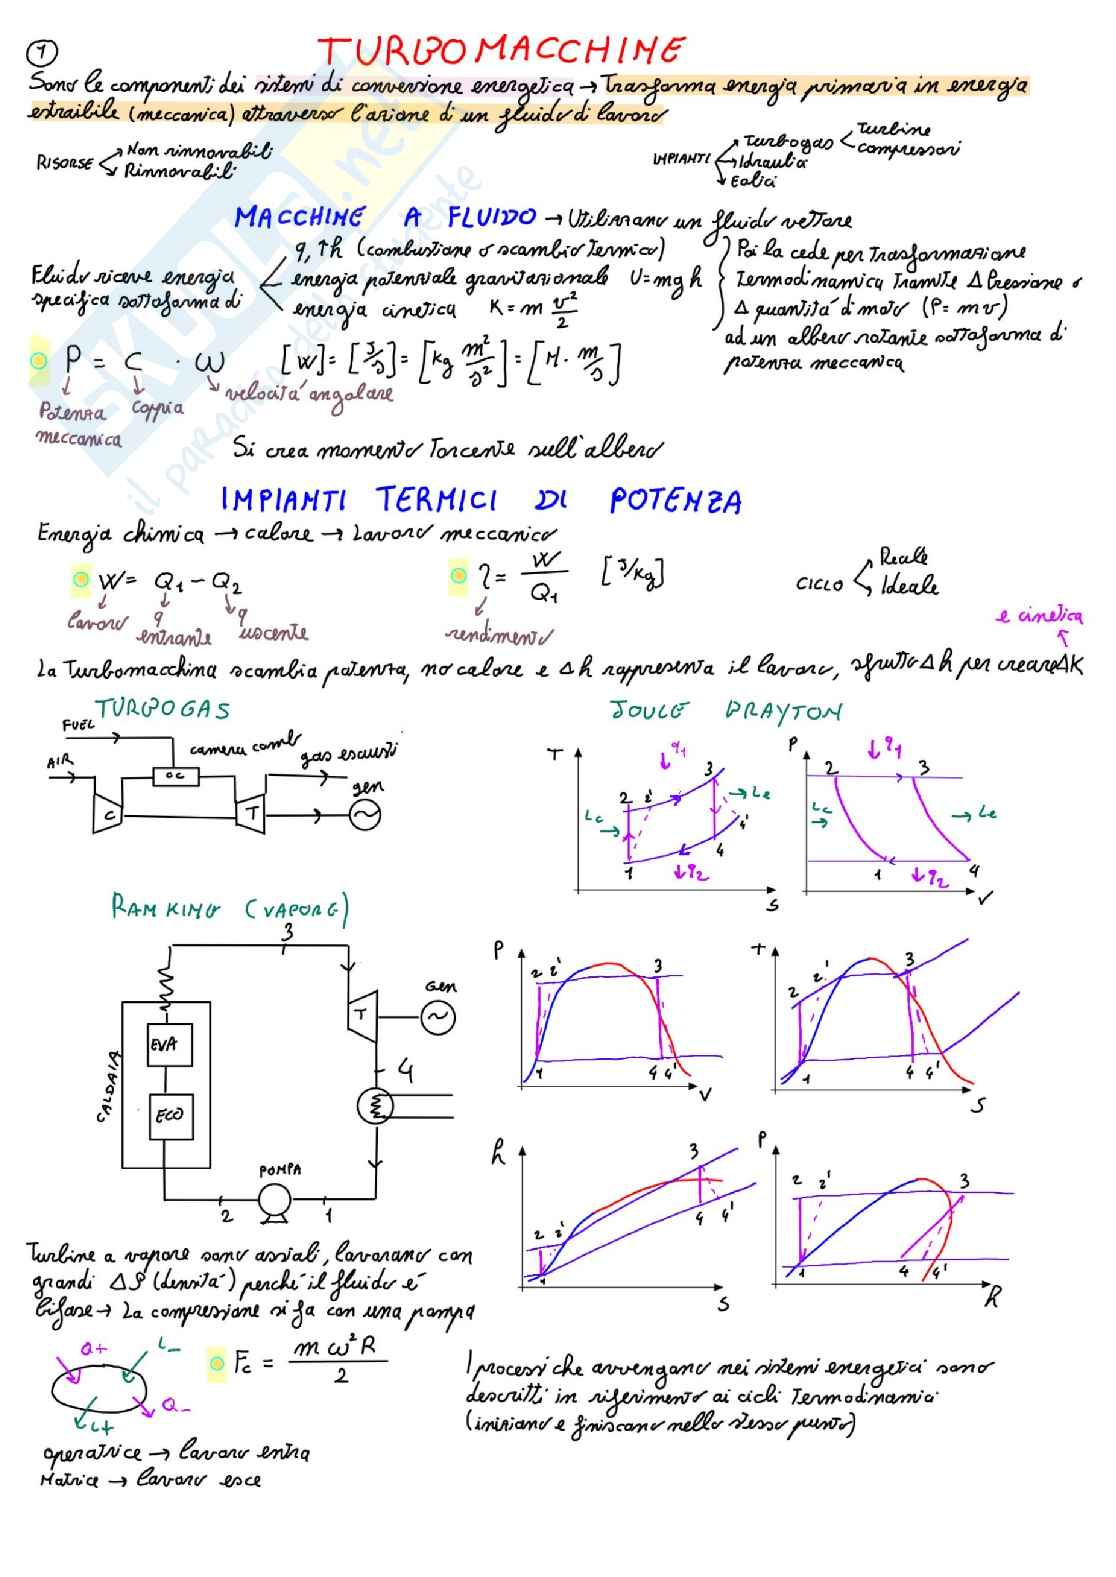 1
TURBOMACCHINE
Sono le componenti dei sistemi di conversione energetica → Trasforma energia primaria in energia
estraibile (meccanica) attraverso l'azione di un fluido di lavoro
RISORSE
Non rinnovabili
Rinnovabili
IMPIANTI
Turbogas
Turbine
compressori
Idraulici
Eolici
MACCHINE A FLUIDO → Utilizzano un fluido vettore
Fluido riceve energia
specifica sottoforma di
q, ↑h (combustione o scambio termico)
energia potenziale gravitazionale U=mgh
energia cinetica K = m v²/2
Poi la cede per trasformazione
termodinamica tramite Δ Pressione o
Δ quantità di moto (P = mv)
ad un albero rotante sottoforma di
potenza meccanica
P = C · ω [W] = [J/s] = [kg m²/s²] = [N · m/s]
Potenza
meccanica
Coppia
velocità angolare
Si crea momento torcente sull'albero
IMPIANTI TERMICI DI POTENZA
Energia chimica → calore → Lavoro meccanico
W = Q1 - Q2
lavoro
q
entrante
q
uscente
η = W/Q1 [J/kg]
rendimento
CICLO
Reale
Ideale
e cinetica
La Turbomacchina scambia potenza, no calore e Δh rappresenta il lavoro, sfrutto Δh per creare ΔK
TURBOGAS
FUEL
AIR
camera comb
gas escausti
CC
C
T
gen
JOULE BRAYTON
T
q1
3
2
2'
Lc
Le
4'
4
1
q2
S
P
q1
2
3
Lc
Le
1
q2
4
V
RANKING (VAPORE)
3
T
Gen
4
CALDAIA
EVA
ECO
POMPA
2
1
P
2
2'
3
1
4
4'
V
T
2
2'
3
1
4
4'
S
h
3
2
2'
1
4
4'
S
P
2
2'
3
1
4
4'
h
Turbine a vapore sono assiali, lavorano con
grandi Δρ (densità) perché il fluido è
bifase → La compressione si fa con una pompa
Q+
L-
L+
Q-
Fc = m ω² R / 2
operatrice → lavoro entra
Motrice → lavoro esce
I processi che avvengono nei sistemi energetici sono
descritti in riferimento ai cicli termodinamici
(iniziano e finiscono nello stesso punto)
SKUOLA.net
il paradiso dello studente